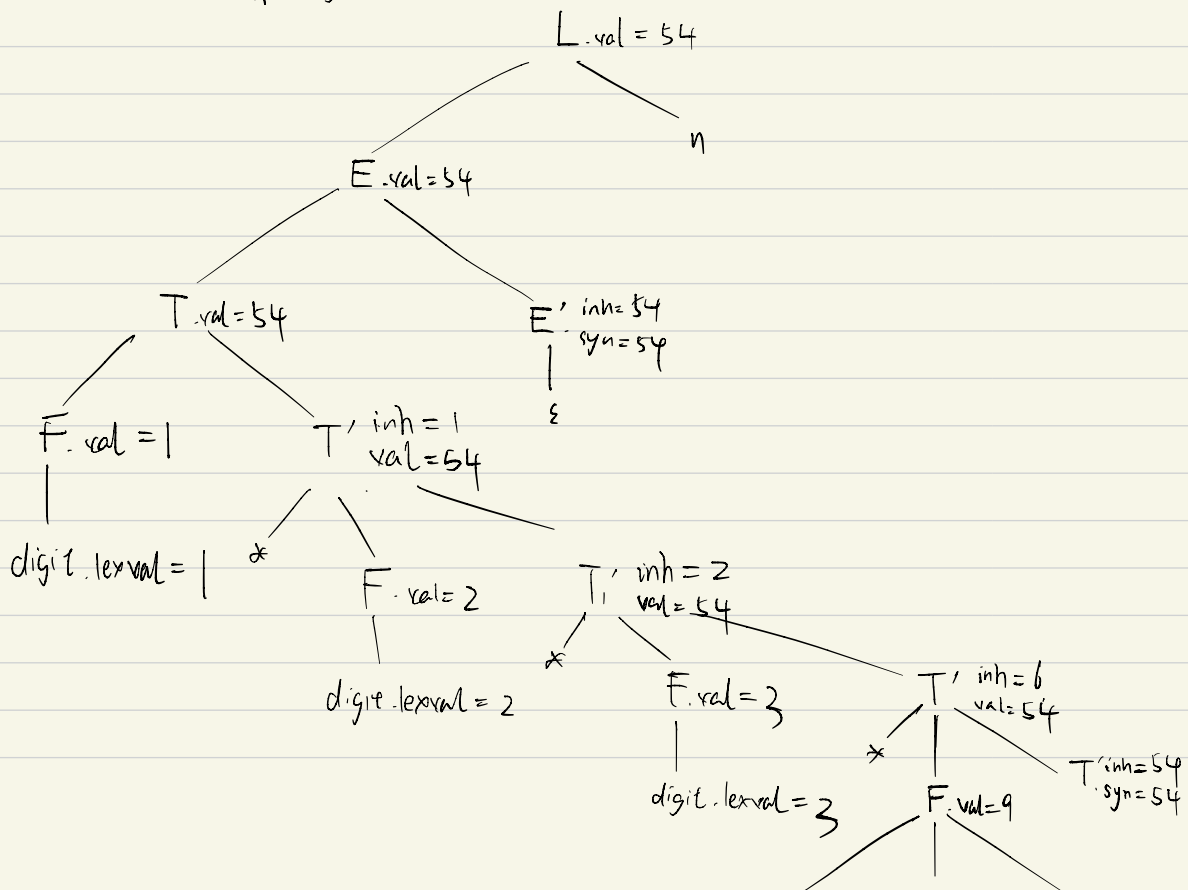 L.val = 54
n
E.val=54
T.val=54
E' inh=54
syn=54
ε
F.val =1
T' inh = 1
val=54
digit.lexval = 1
*
F.val=2
T₁' inh = 2
val=54
digit.lexval = 2
*
F.val=3
T' inh=6
val=54
digit.lexval = 3
*
F.val=9
T' inh=54
syn=54